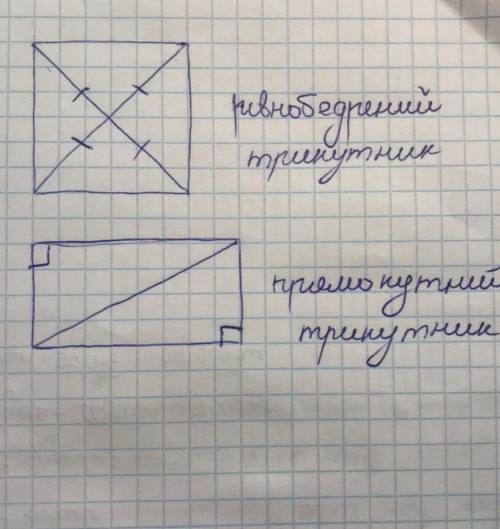 рівнобедрений
трикутник
прямокутний
трикутник